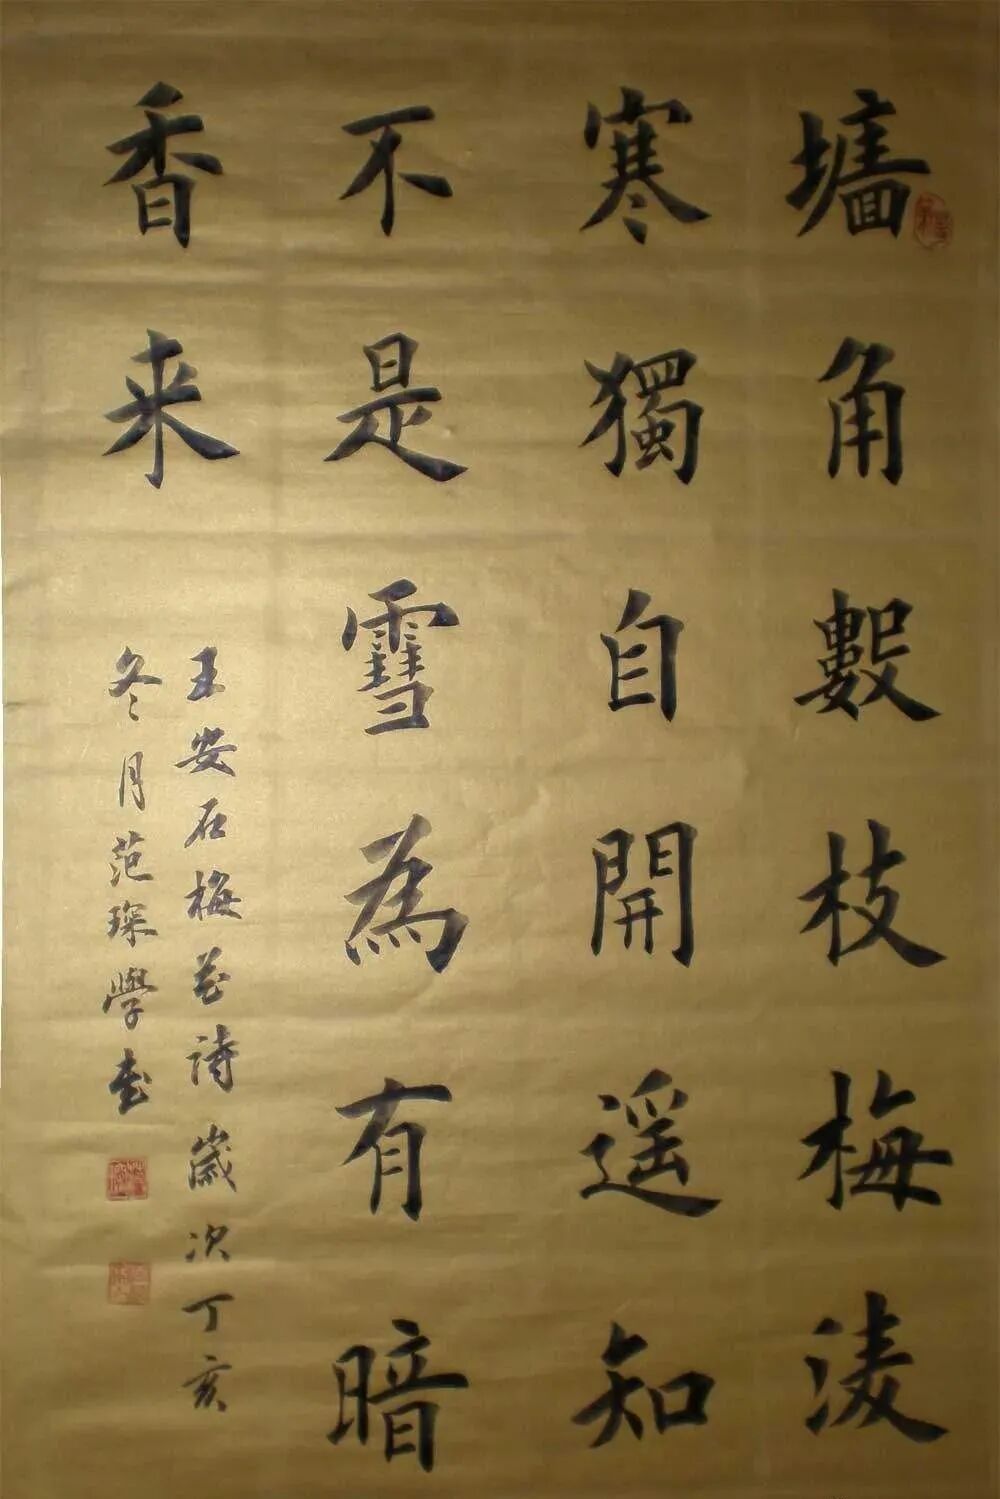 墻角數枝梅淩
寒獨自開遥知
不是雪為有暗
香来
王安石梅花詩歲次丁亥
冬月范琛學書